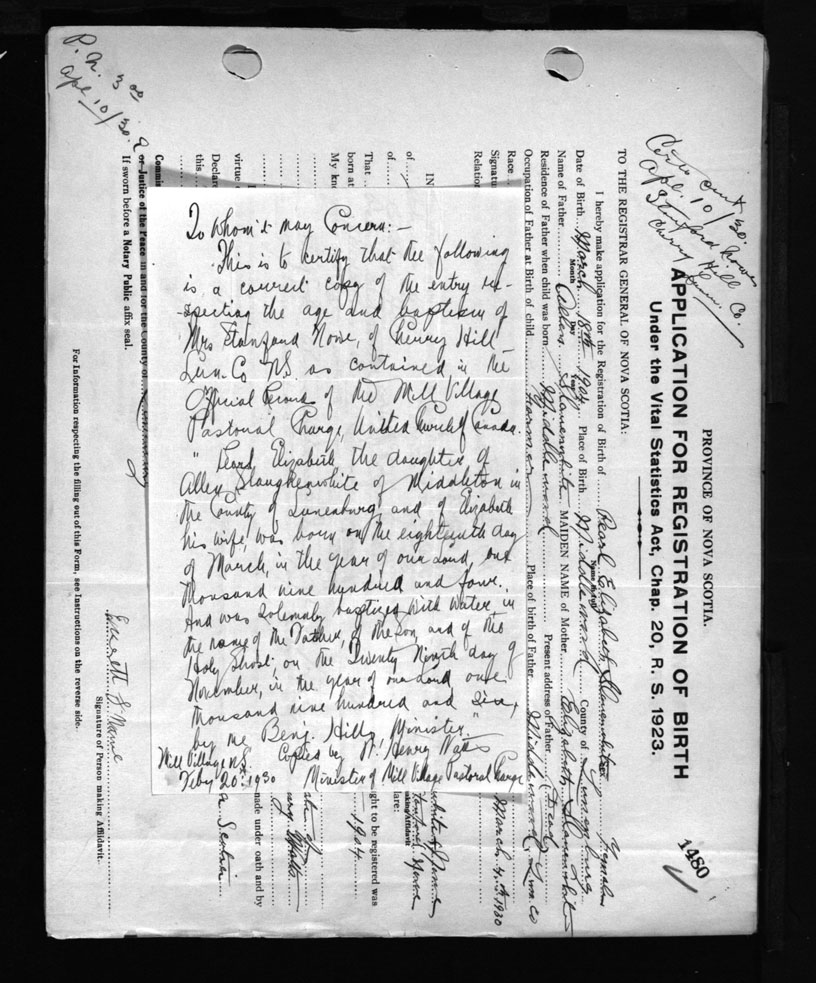 PROVINCE OF NOVA SCOTIA.
APPLICATION FOR REGISTRATION OF BIRTH
Under the Vital Statistics Act, Chap. 20, R. S. 1923.
1480
apl. 10/30.
Cherry Hill
Lun. Co.
TO THE REGISTRAR GENERAL OF NOVA SCOTIA:
I hereby make application for the Registration of Birth of Pearl Elizabeth Female
Date of Birth March 18th 1904 Place of Birth Middlewood County of Lunenburg
Month Day Year
Name of Father Allen MAIDEN NAME of Mother Elizabeth
Residence of Father when child was born Middlewood Present address of Father Dead
Occupation of Father at Birth of child Farmer Place of birth of Father Middlewood Lun. Co
Race March 4th 1930
Signatu
Relatio
IN
of
of lare:
That ght to be registered was
born at 1904
My kno
virtue made under oath and by
Declare
this a Scotia
Commi
or Justice of the Peace in and for the County of
If sworn before a Notary Public affix seal.
Signature of Person making Affidavit.
For Information respecting the filling out of this Form, see Instructions on the reverse side.
P. N. 3.00
apl. 10/30.
To whom it may Concern:-
This is to certify that the following
is a correct copy of the entry re-
-specting the age and baptism of
Mrs Stanford Nowe, of Cherry Hill
Lun. Co N.S. as contained in the
Official Records of the Mill Village
Pastoral Charge, United Church of Canada.
" Pearl Elizabeth the daughter of
Allen Slaughenwhite of Middleton in
the County of Lunenburg and of Elizabeth
his wife, was born on the eighteenth day
of March, in the year of our Lord, one
thousand nine hundred and four.
And was solemnly baptized with water in
the name of the Father, of the Son, and of the
Holy Ghost, on the Twenty Ninth day of
November, in the year of our Lord one
thousand nine hundred and Six,
by me Benj. Hills, Minister."
Mill Village N.S. Copied by W. Henry Watts
Feby 20. 1930 Minister of Mill Village Pastoral Charge